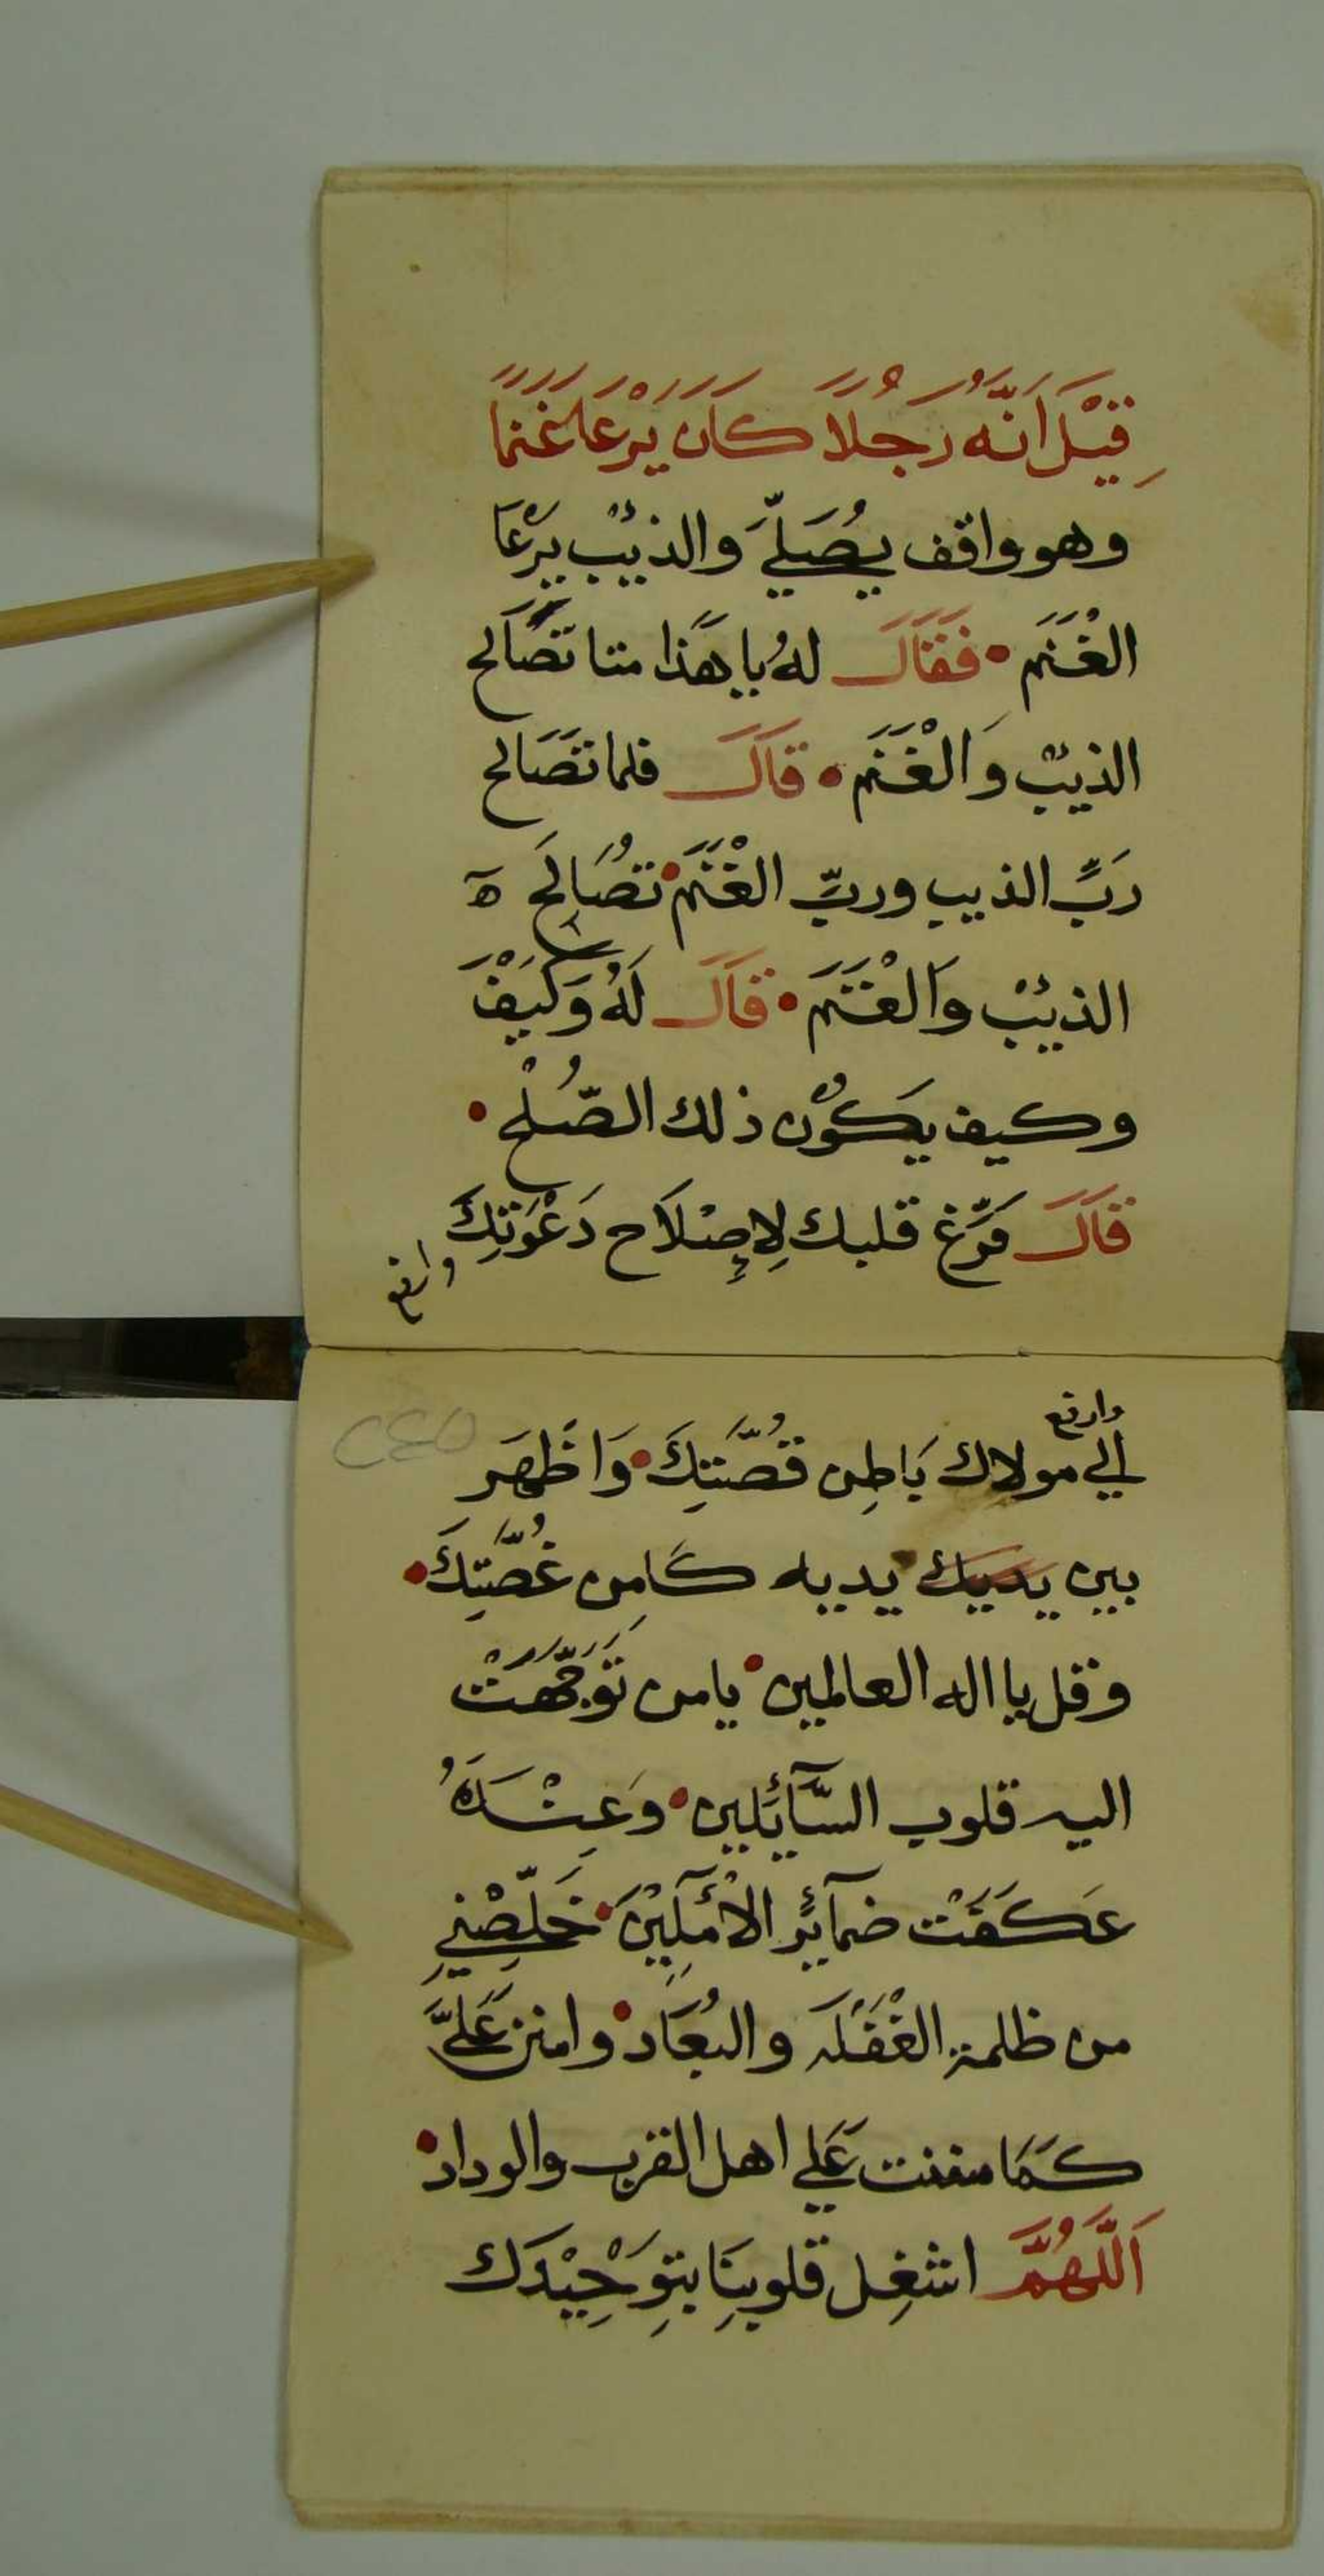 قِيْلَ اَنَّهُ رَجُلاً كَانَ يَرْعَا غَنَمًا
وهو واقف يُصَلِّيَ والذيْب يَرْعَا
الغْنَم • فَقَالَ لهُ يا هَذا متا تَصَالح
الذيْب وَالْغَنَم • قَالَ فلما تَصَالح
رَبِّ الذيب وربِّ الغْنَم • تصُالَح ه
الذيْب وَالْغَنَم • قَالَ لَهُ وَكَيَفْ
وكيف يَكُون ذلك الصُّلْح •
قَالَ فَرِّغ قلبك لِاِصْلَاح دَعْوَتِكَ
وارفع
وارفع
الي مولاك بَاطِن قُصَّتِكَ • وَاظْهَر
٢٤٥
بين يديك يديه كَامِن غُصَّتِكَ •
وقل يا اله العالمين • يامن تَوَجَّهَتْ
اليه قلوب السَّآئِلين • وَعِنْدَهُ
عَكَفَتْ ضمآئِر الاْمِلِيْنَ • خَلِّصْنِي
من ظلمة الغْفَلَه والبُعَاد • وامنن عَلَيَّ
كَمَا مننت عَلي اهل القرب والوداد •
اَللَّهُمَّ اشغِل قلوبِنَا بتِوَحِيْدَك